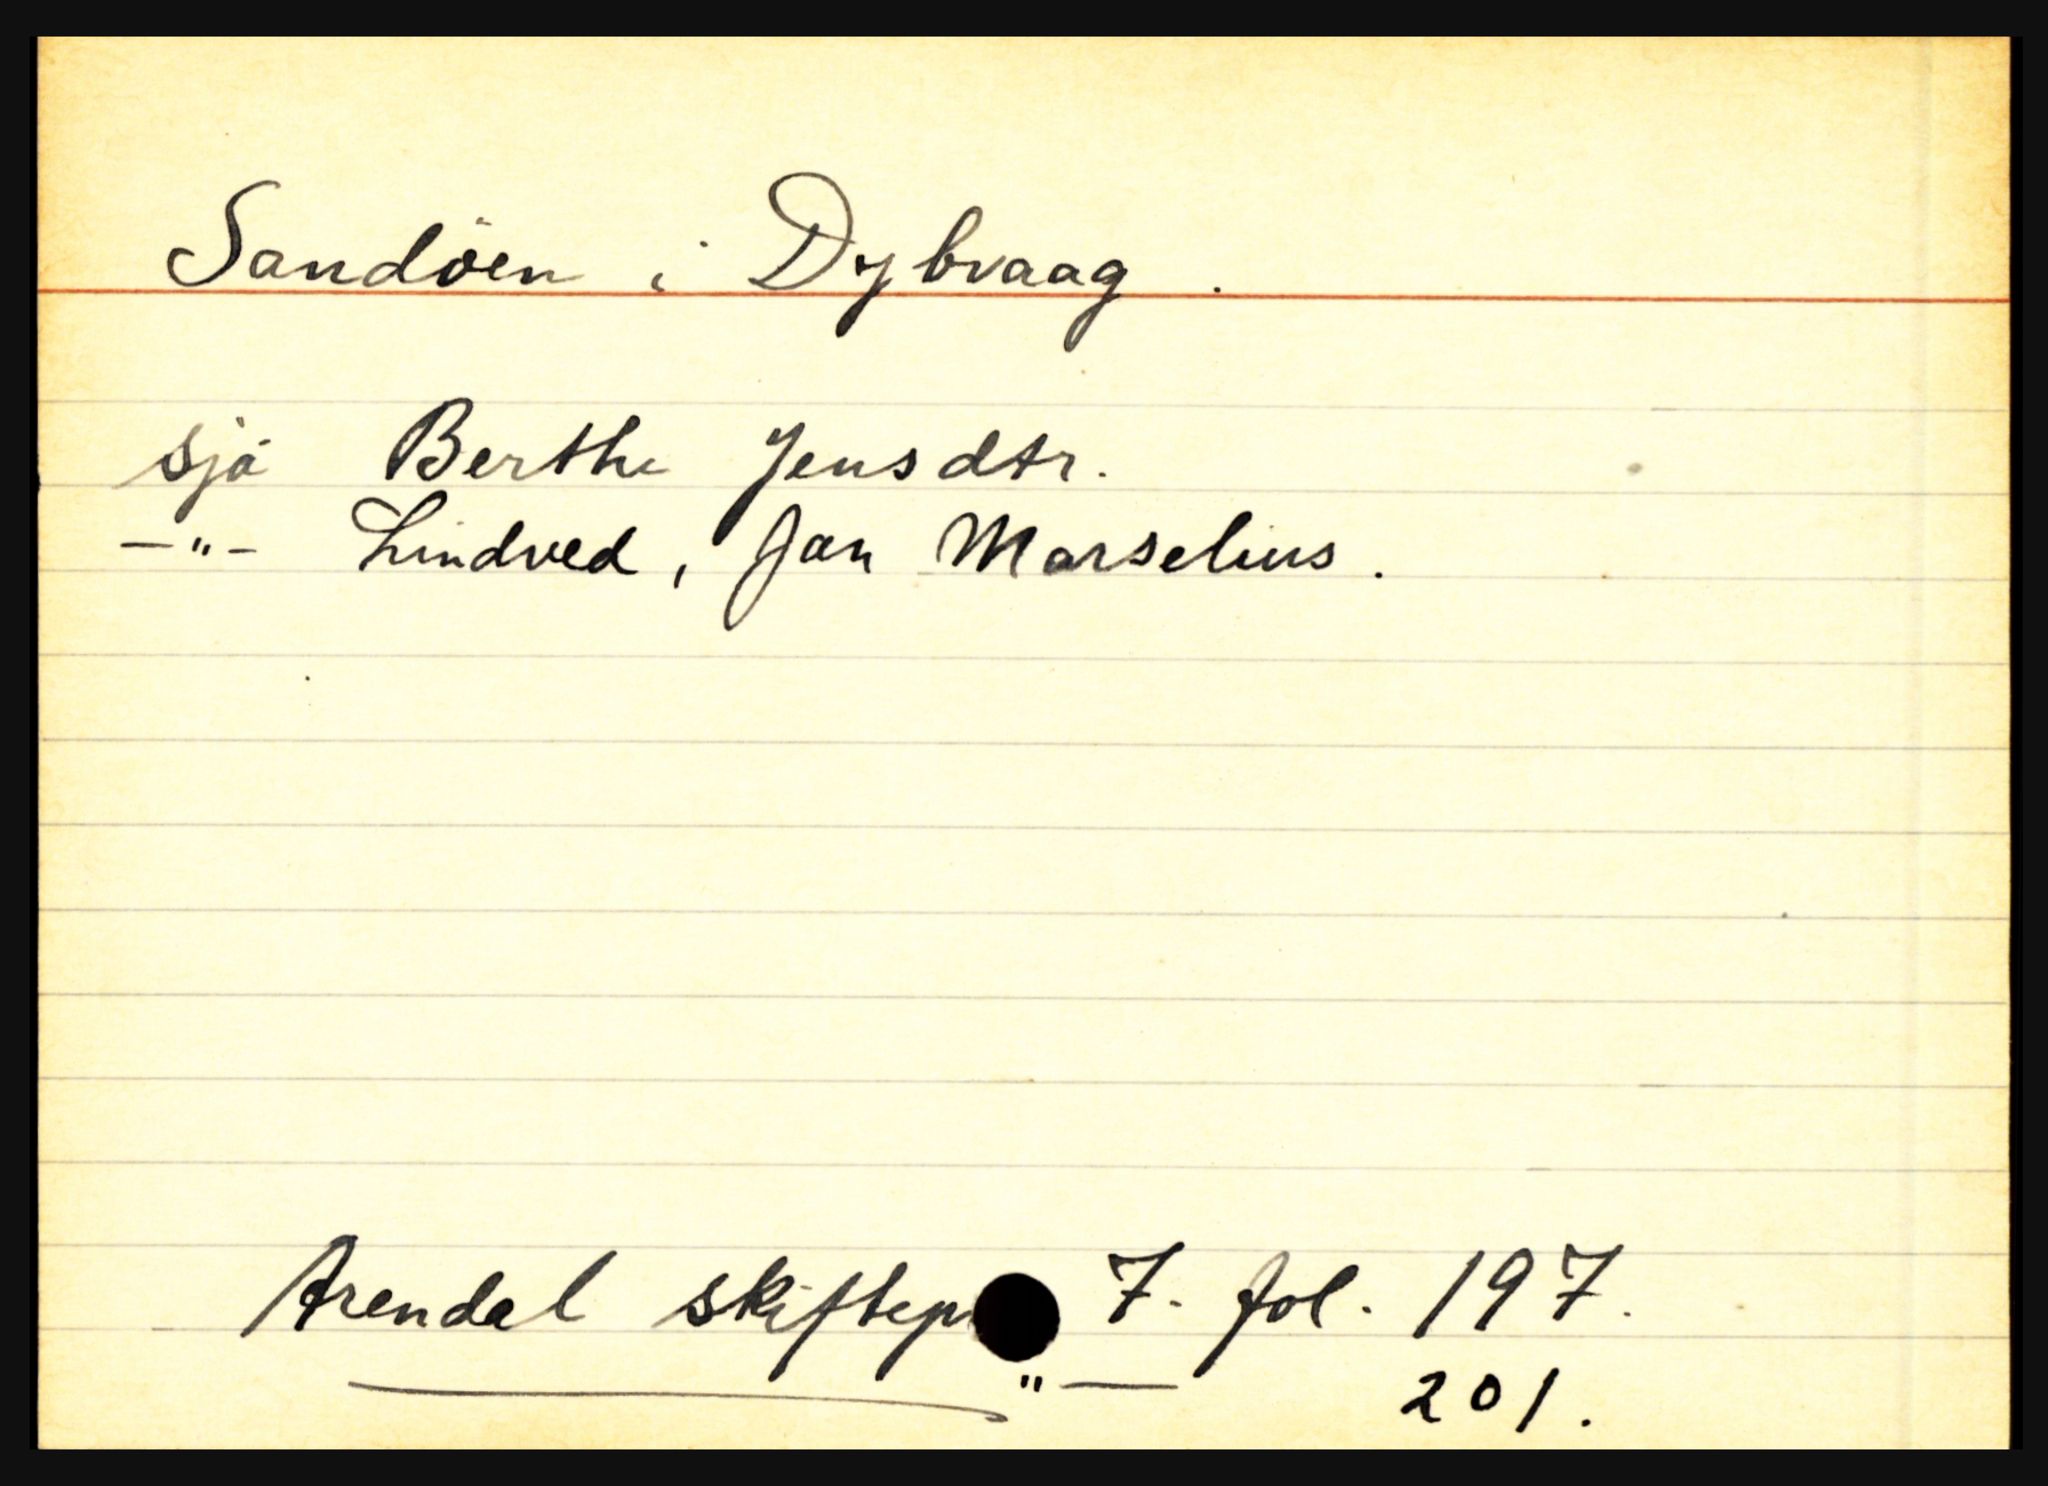 Sandöen i Dybvaag.
sjå Berthe Jensdtr.
—"— Lindved, Jan Marselius.
Arendal skiftep 7. fol. 197.
—"— 201.